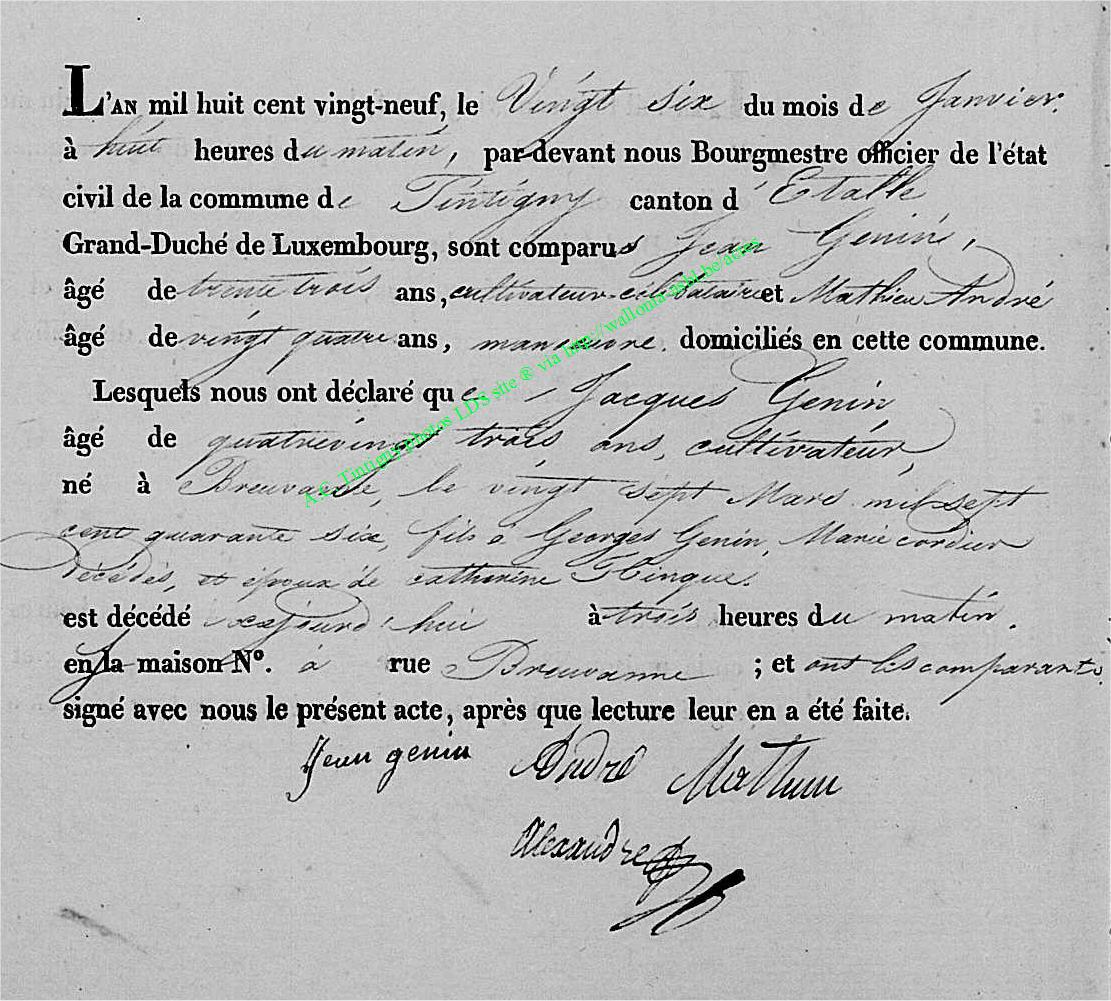 L'AN mil huit cent vingt-neuf, le Vingt six du mois de Janvier.
à huit heures du matin, par-devant nous Bourgmestre officier de l'état
civil de la commune de Tintigny canton d'Etalle
Grand-Duché de Luxembourg, sont comparus Jean Genin,
âgé de trente trois ans, cultivateur célibataire et Mathieu André
âgé de vingt quatre ans, manœuvre. domiciliés en cette commune.
Lesquels nous ont déclaré que Jacques Genin
âgé de quatrevingt trois ans, cultivateur,
né à Breuvanne, le vingt sept Mars mil sept
cent quarante six, fils à Georges Genin, Marie cordier
décédés, et époux de catherine
est décédé cejourd'hui à trois heures du matin.
en la maison No. à rue Breuvanne ; et ont les comparants
signé avec nous le présent acte, après que lecture leur en a été faite.
Jean genin André Mathieu
Alexandre
A.C. Tintigny photos LDS site ® via http://wallonia-asbl.be/actes